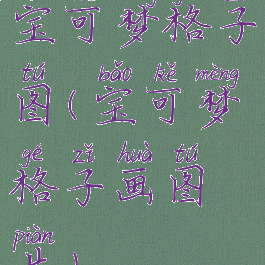 宝可梦格子
tú bǎo kě mèng
图(宝可梦
gé zǐ huà tú
格子画图
piàn
片)